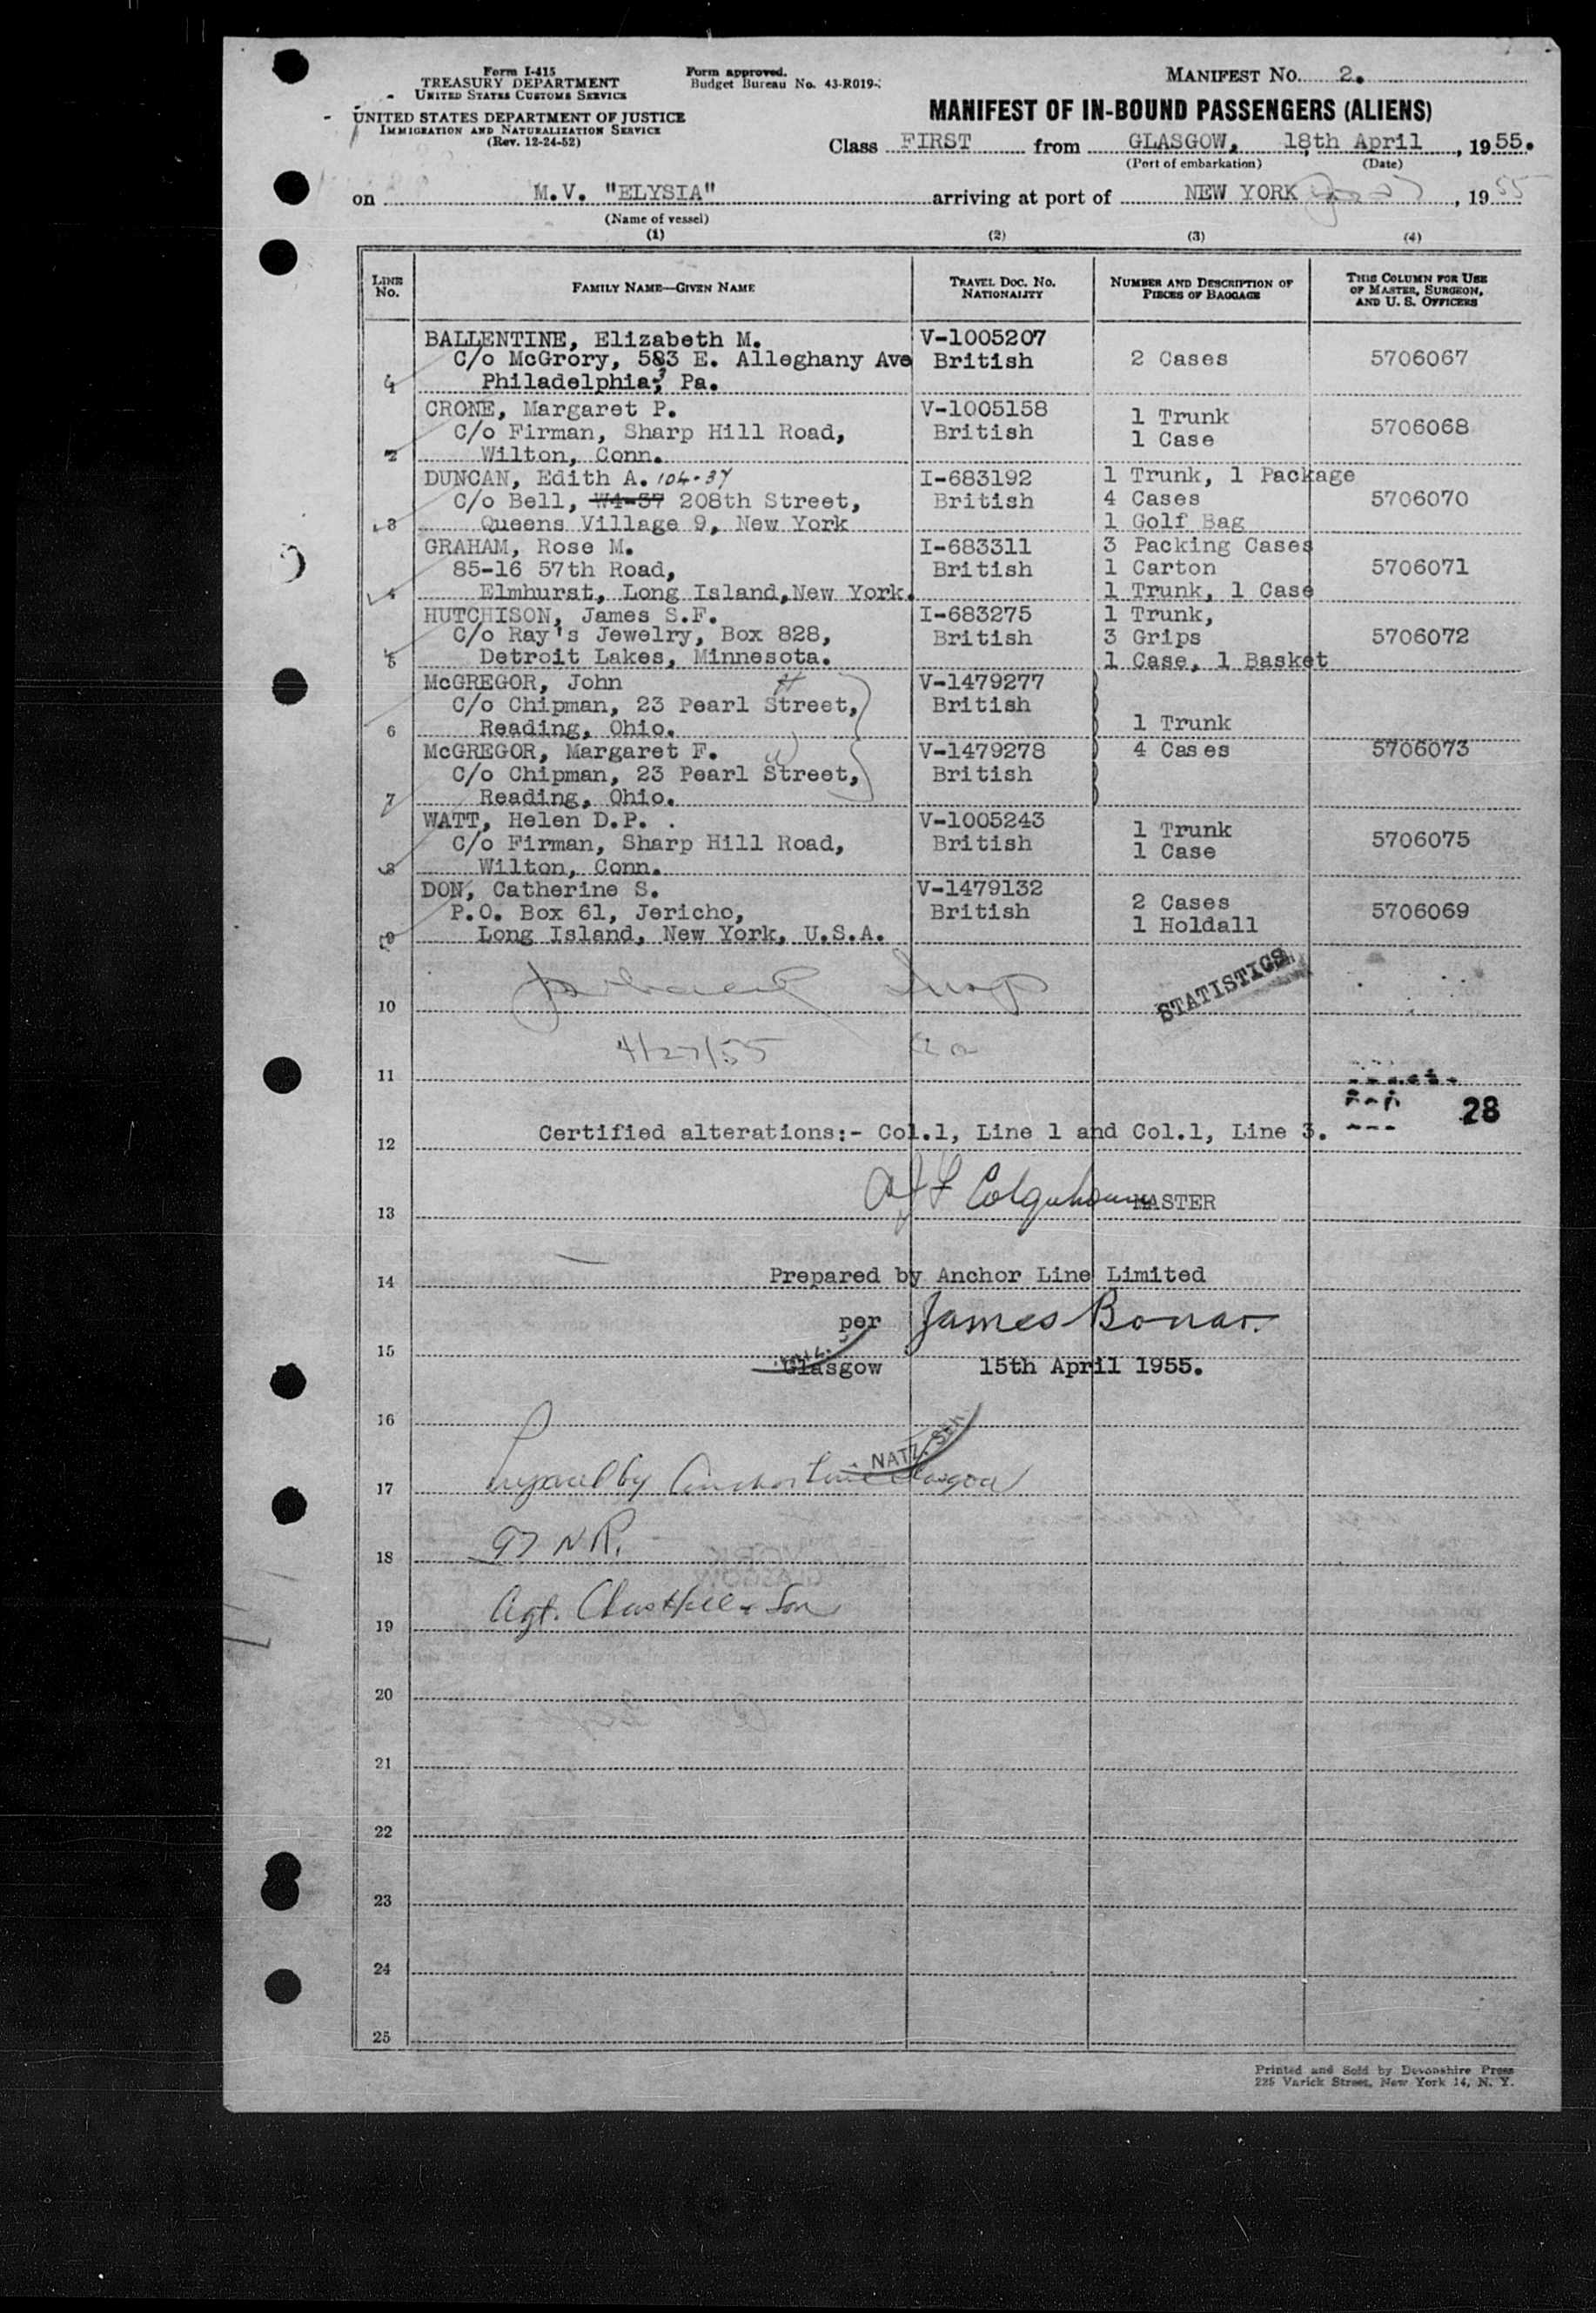 Form I-415
TREASURY DEPARTMENT
UNITED STATES CUSTOMS SERVICE
UNITED STATES DEPARTMENT OF JUSTICE
IMMIGRATION AND NATURALIZATION SERVICE
(Rev. 12-24-52)
Form approved.
Budget Bureau No. 43-R019-
MANIFEST NO. 2.
MANIFEST OF IN-BOUND PASSENGERS (ALIENS)
Class FIRST from GLASGOW, 18th April, 1955.
(Port of embarkation) (Date)
on M.V. "ELYSIA" arriving at port of NEW YORK , 1955
(Name of vessel)
(1) (2) (3) (4)
LINE NO. FAMILY NAME—GIVEN NAME TRAVEL DOC. NO. NATIONALITY NUMBER AND DESCRIPTION OF PIECES OF BAGGAGE THIS COLUMN FOR USE OF MASTER, SURGEON, AND U. S. OFFICERS
BALLENTINE, Elizabeth M. V-1005207
C/o McGrory, 583 E. Alleghany Ave British 2 Cases 5706067
Philadelphia, Pa.
CRONE, Margaret P. V-1005158 1 Trunk
C/o Firman, Sharp Hill Road, British 1 Case 5706068
2 Wilton, Conn.
DUNCAN, Edith A. 104-37 I-683192 1 Trunk, 1 Package
C/o Bell, W4-37 208th Street, British 4 Cases 5706070
3 Queens Village 9, New York 1 Golf Bag
GRAHAM, Rose M. I-683311 3 Packing Cases
85-16 57th Road, British 1 Carton 5706071
4 Elmhurst, Long Island, New York. 1 Trunk, 1 Case
HUTCHISON, James S.F. I-683275 1 Trunk,
C/o Ray's Jewelry, Box 828, British 3 Grips 5706072
5 Detroit Lakes, Minnesota. 1 Case, 1 Basket
McGREGOR, John H V-1479277
C/o Chipman, 23 Pearl Street, British
6 Reading, Ohio. 1 Trunk
McGREGOR, Margaret F. W V-1479278 4 Cases 5706073
C/o Chipman, 23 Pearl Street, British
7 Reading, Ohio.
WATT, Helen D.P. V-1005243 1 Trunk
C/o Firman, Sharp Hill Road, British 1 Case 5706075
8 Wilton, Conn.
DON, Catherine S. V-1479132 2 Cases
P.O. Box 61, Jericho, British 1 Holdall 5706069
9 Long Island, New York, U.S.A.
STATISTICS
10
4/27/55
11
28
12 Certified alterations:- Col.1, Line 1 and Col.1, Line 3.
13 Colquhoun MASTER
14 Prepared by Anchor Line Limited
15 per James Bonar.
Glasgow 15th April 1955.
16
NATZ. SER.
17 Prepared by Anchor Line Glasgow
18 97 N R.
19 Agt. Chas Hill & Son
20
21
22
23
24
25
Printed and Sold by Devonshire Press
225 Varick Street, New York 14, N. Y.